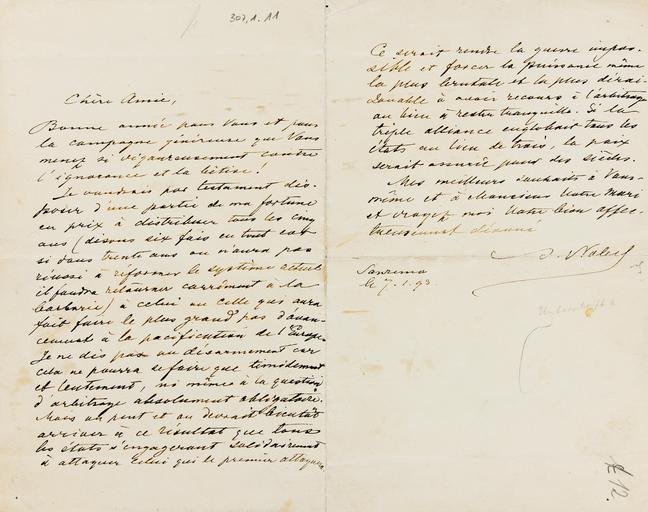 307.1.11
Chère Amie,
Bonne année pour Vous et pour
la campagne généreuse que Vous
menez si vigoureusement contre
l'ignorance et la bêtise!
Je voudrais par testament dis-
poser d'une partie de ma fortune
en prix à distribuer tous les cinq
ans (disons six fois en tout car
si dans trente ans on n'aura pas
réussi à réformer le système actuel
il faudra retourner carrément à la
barbarie) à celui ou celle qui aura
fait faire le plus grand pas d'avan-
cement à la pacification de l'Europe.
Je ne dis pas au désarmement car
cela ne pourra se faire que timidement
et lentement, ni même à la question
d'arbitrage absolument obligatoire.
Mais on peut et on devrait bientôt
arriver à ce résultat que tous
les états s'engagerant solidairement
à attaquer celui qui le premier attaquera.
Ce serait rendre la guerre impos-
sible et forcer la puissance même
la plus brutale et la plus dérai-
sonable à avoir recours à l'arbitrage
ou bien à rester tranquille. Si la
triple alliance englobait tous les
états au lieu de trois, la paix
serait assurée pour des siècles.
Mes meilleurs souhaits à Vous-
même et à Monsieur Votre Mari
et croyez moi Votre bien affec-
tueusement dévoué
A. Nobel
Sanremo
le 7.1.93.
12.